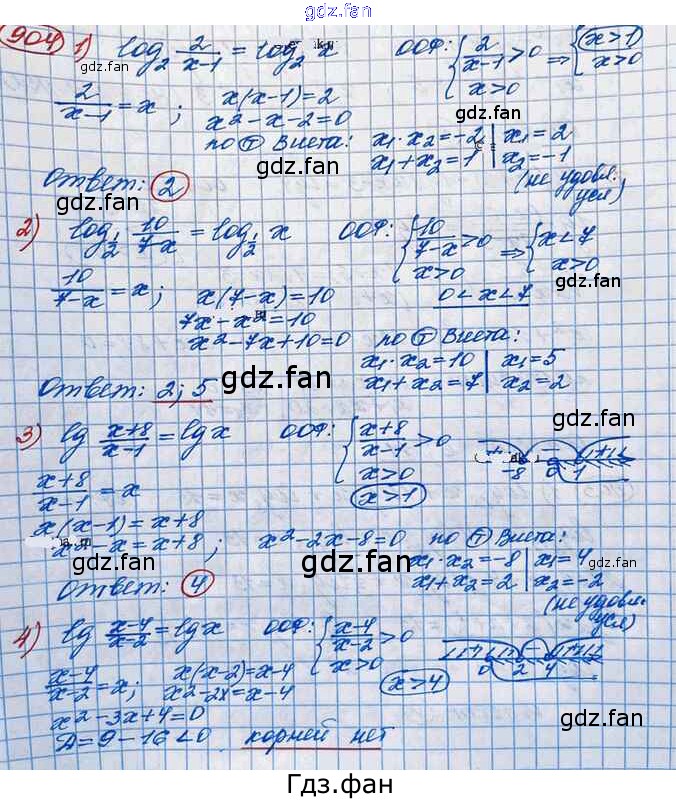 gdz.fan
904 1) log₂ 2/(x-1) = log₂ x ООФ: { 2/(x-1) > 0 ⇒ { x>1
x>0 x>0
2/(x-1) = x ; x(x-1)=2
x² - x - 2 = 0
по т Виета: x₁·x₂ = -2 | x₁ = 2
x₁+x₂ = 1 | x₂ = -1
(не удовл.
усл)
Ответ: 2
2) log₁/₂ 10/(7-x) = log₁/₂ x ООФ: { 10/(7-x) > 0 ⇒ { x<7
x>0 x>0
10/(7-x) = x; x(7-x)=10 0<x<7
7x - x² = 10
x² - 7x + 10 = 0 по т Виета:
x₁·x₂ = 10 | x₁ = 5
x₁+x₂ = 7 | x₂ = 2
Ответ: 2; 5
gdz.fan
3) lg (x+8)/(x-1) = lg x ООФ: { (x+8)/(x-1) > 0
x>0
-8 0 1
(x+8)/(x-1) = x x>1
x(x-1) = x+8
x² - x = x+8 ; x² - 2x - 8 = 0 по т Виета:
x₁·x₂ = -8 | x₁ = 4
x₁+x₂ = 2 | x₂ = -2
(не удовл.
усл)
Ответ: 4
4) lg (x-4)/(x-2) = lg x ООФ: { (x-4)/(x-2) > 0
x>0
0 2 4
(x-4)/(x-2) = x; x(x-2) = x-4 x>4
x² - 2x = x-4
x² - 3x + 4 = 0
Д = 9 - 16 < 0 корней нет
gdz.fan
Гдз.фан